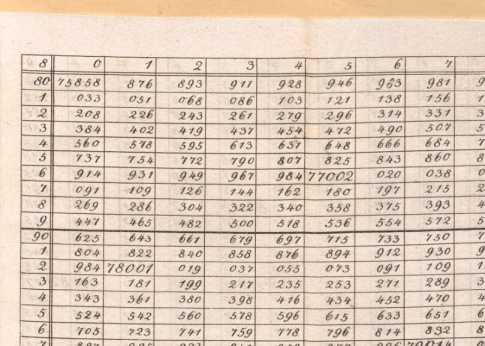 8 0 1 2 3 4 5 6 7 9
80 75858 876 893 911 928 946 963 981 9
1 033 051 068 086 103 121 138 156 1
2 208 226 243 261 279 296 314 331 3
3 384 402 419 437 454 472 490 507 5
4 560 578 595 613 631 648 666 684 7
5 737 754 772 790 807 825 843 860 8
6 914 931 949 967 984 77002 020 038 0
7 091 109 126 144 162 180 197 215 2
8 269 286 304 322 340 358 375 393 4
9 447 465 482 500 518 536 554 572 5
90 625 643 661 679 697 715 733 750 7
1 804 822 840 858 876 894 912 930 9
2 984 78001 019 037 055 073 091 109 1
3 163 181 199 217 235 253 271 289 3
4 343 361 380 398 416 434 452 470 4
5 524 542 560 578 596 615 633 651 6
6 705 723 741 759 778 796 814 832 8